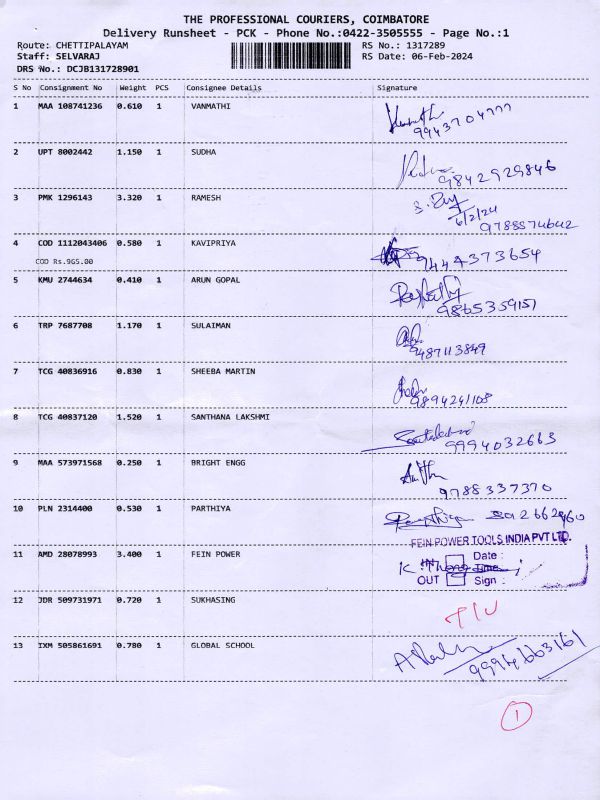 THE PROFESSIONAL COURIERS, COIMBATORE
Delivery Runsheet - PCK - Phone No.:0422-3505555 - Page No.:1
Route: CHETTIPALAYAM RS No.: 1317289
Staff: SELVARAJ RS Date: 06-Feb-2024
DRS No.: DCJB131728901
S No Consignment No Weight PCS Consignee Details Signature
1 MAA 108741236 0.610 1 VANMATHI
9943704777
2 UPT 8002442 1.150 1 SUDHA
9842929846
3 PMK 1296143 3.320 1 RAMESH
6/2/24
9788574642
4 COD 1112043406 0.580 1 KAVIPRIYA
9444373654
COD Rs.965.00
5 KMU 2744634 0.410 1 ARUN GOPAL
9865359151
6 TRP 7687708 1.170 1 SULAIMAN
9487113849
7 TCG 40836916 0.830 1 SHEEBA MARTIN
9894241108
8 TCG 40837120 1.520 1 SANTHANA LAKSHMI
9994032663
9 MAA 573971568 0.250 1 BRIGHT ENGG
9788337370
10 PLN 2314400 0.530 1 PARTHIYA
FEIN POWER TOOLS INDIA PVT LTD.
11 AMD 28078993 3.400 1 FEIN POWER
IN Date :
Time :
OUT Sign :
12 JDR 509731971 0.720 1 SUKHASING
13 IXM 505861691 0.780 1 GLOBAL SCHOOL
9994663161
1